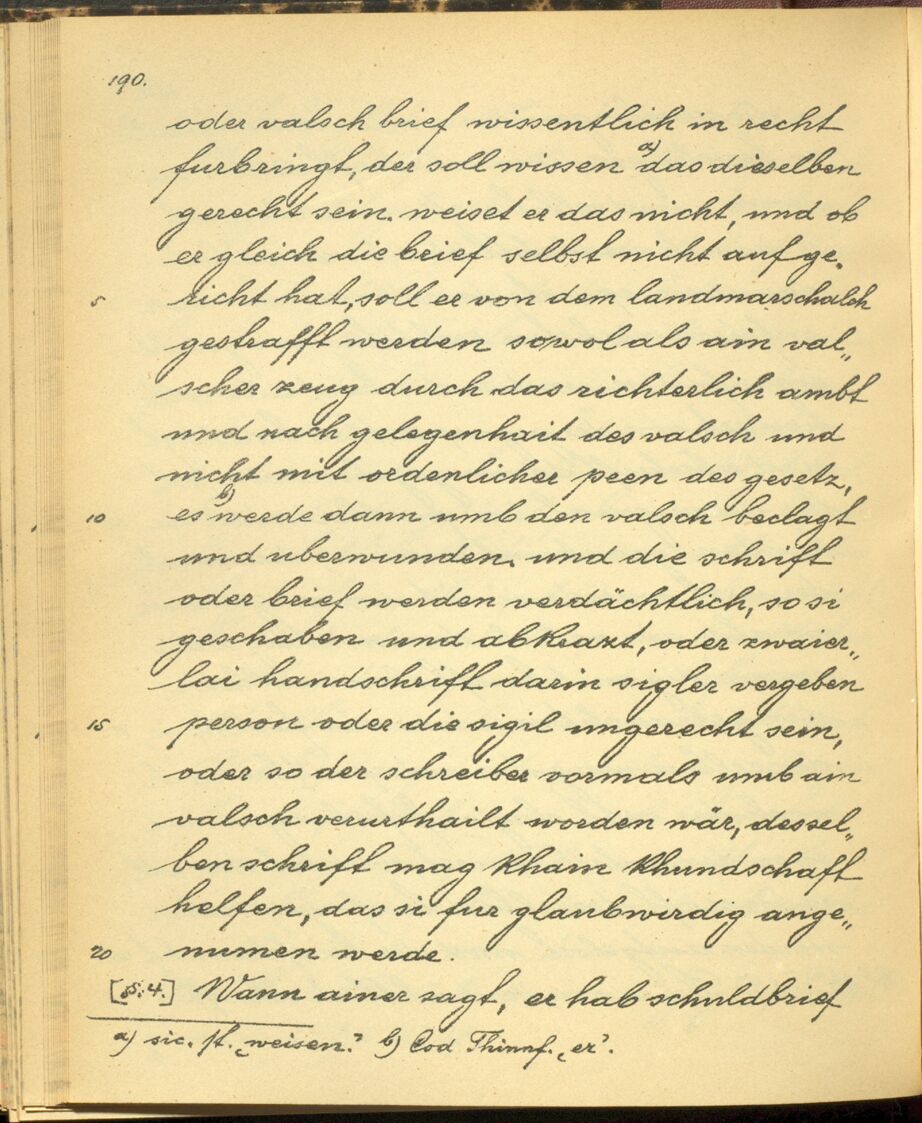 190.
oder valsch brief wissentlich in recht
furbringt, der soll wissen a) das dieselben
gerecht sein. weiset er das nicht, und ob
er gleich die brief selbst nicht aufge„
5 richt hat, soll er von dem landmarschalch
gestrafft werden sowol als ain val„
scher zeug durch das richterlich ambt
und nach gelegenhait des valsch und
nicht mit ordenlicher peen des gesetz,
10 es b) werde dann umb den valsch beclagt
und uberwunden. und die schrift
oder brief werden verdächtlich, so si
geschaben und abkrazt, oder zwaier„
lai handschrift darin sigler vergeben
15 person oder die sigil ungerecht sein,
oder so der schreiber vormals umb ain
valsch verurthailt worden wär, dessel„
ben schrift mag khain khundschaft
helfen, das si fur glaubwirdig ange„
20 numen werde.
[§:4.] Wann ainer sagt, er hab schuldbrief
a) sic. st. „weisen." b) Cod Thinnf. „er".